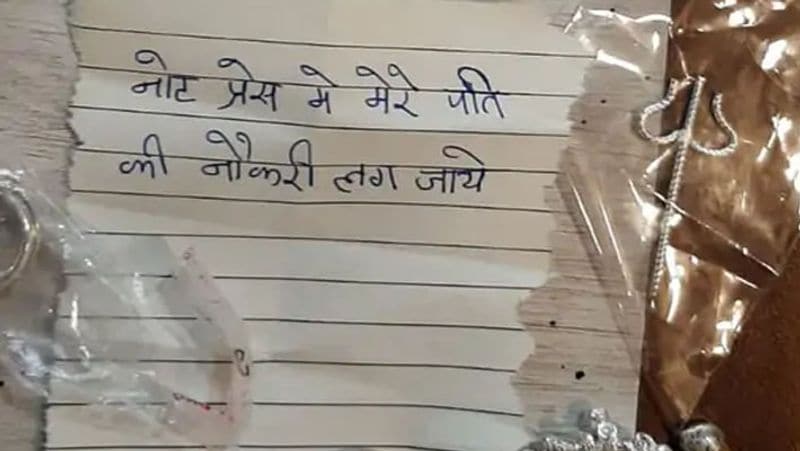 नोट प्रेस मे मेरे पति
की नौकरी लग जाये